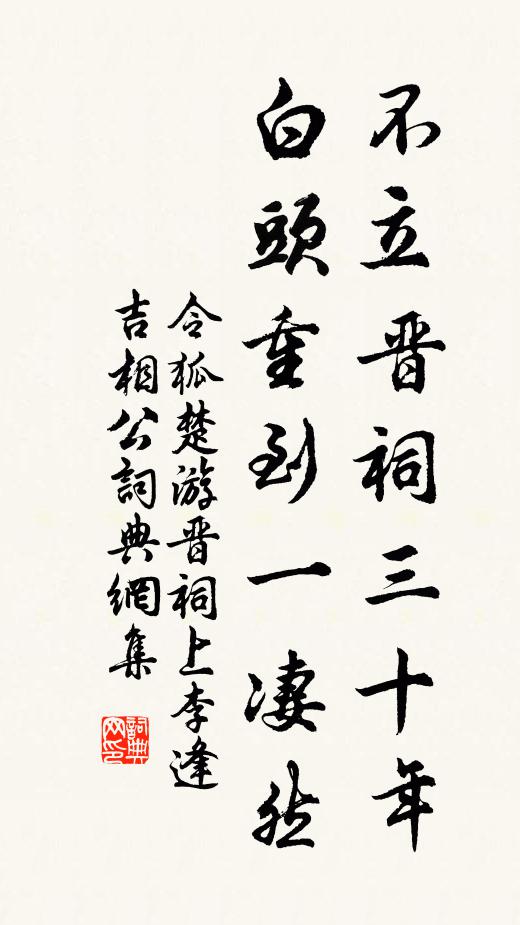 不立晋祠三十年
白頭重到一凄然
令狐楚游晋祠上李逢
吉相公詞典網集
詞典网印